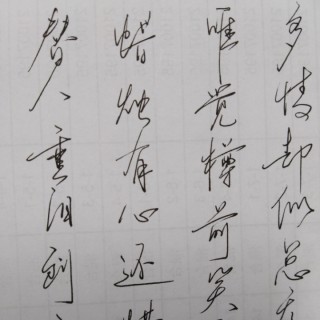 多情却似总无
唯觉樽前笑
蜡烛有心还惜
替人垂泪到